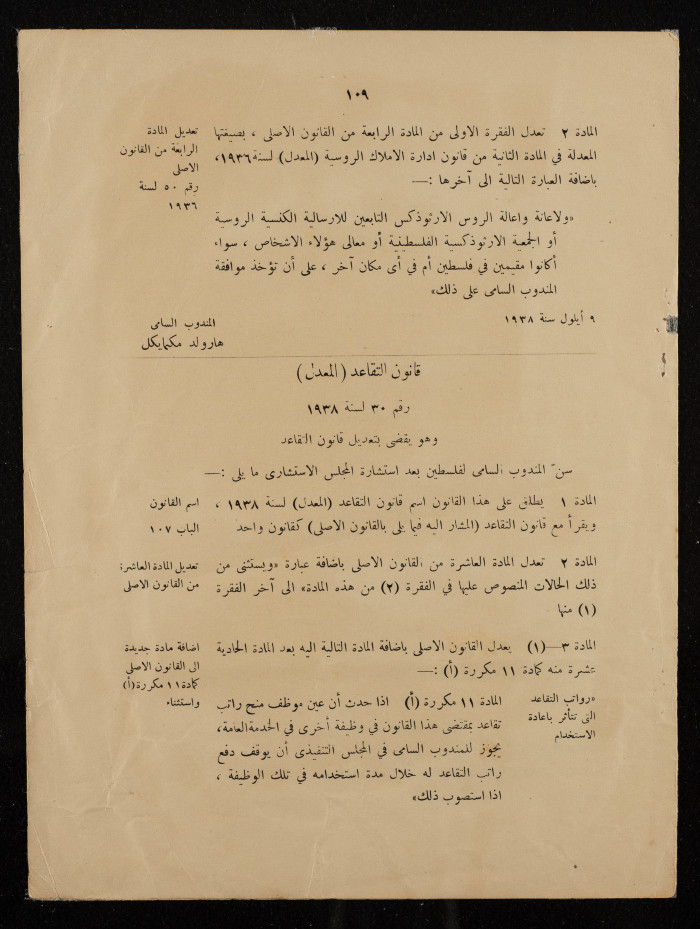 ١٠٩
المادة ٢ تعدل الفقرة الاولى من المادة الرابعة من القانون الاصلى ، بصيغتها
المعدلة في المادة الثانية من قانون ادارة الاملاك الروسية (المعدل) لسنة ١٩٣٦،
باضافة العبارة التالية الى آخرها :—
تعديل المادة
الرابعة من القانون
الاصلى
رقم ٥٠ لسنة
١٩٣٦
«ولاعانة واعالة الروس الارثوذكس التابعين للارسالية الكنسية الروسية
أو الجمعية الارثوذكسية الفلسطينية أو معالى هؤلاء الاشخاص ، سواء
أكانوا مقيمين في فلسطين أم في أى مكان آخر ، على أن تؤخذ موافقة
المندوب السامى على ذلك»
٩ أيلول سنة ١٩٣٨
المندوب السامى
هارولد مكمايكل
قانون التقاعد (المعدل)
رقم ٣٠ لسنة ١٩٣٨
وهو يقضى بتعديل قانون التقاعد
سنّ المندوب السامى لفلسطين بعد استشارة المجلس الاستشارى ما يلى :—
المادة ١ يطلق على هذا القانون اسم قانون التقاعد (المعدل) لسنة ١٩٣٨ ،
ويقرأ مع قانون التقاعد (المشار اليه فيما يلى بالقانون الاصلى) كقانون واحد
اسم القانون
الباب ١٠٧
المادة ٢ تعدل المادة العاشرة من القانون الاصلى باضافة عبارة «ويستثنى من
ذلك الحالات المنصوص عليها في الفقرة (٢) من هذه المادة» الى آخر الفقرة
(١) منها
تعديل المادة العاشرة
من القانون الاصلى
المادة ٣—(١) يعدل القانون الاصلى باضافة المادة التالية اليه بعد المادة الحادية
عشرة منه كمادة ١١ مكررة (أ) :—
اضافة مادة جديدة
الى القانون الاصلى
كمادة ١١ مكررة (أ)
واستثناء
المادة ١١ مكررة (أ) اذا حدث أن عين موظف منح راتب
تقاعد بمقتضى هذا القانون في وظيفة أخرى في الخدمة العامة،
يجوز للمندوب السامى في المجلس التنفيذى أن يوقف دفع
راتب التقاعد له خلال مدة استخدامه في تلك الوظيفة ،
اذا استصوب ذلك»
«رواتب التقاعد
التى تتأثر باعادة
الاستخدام